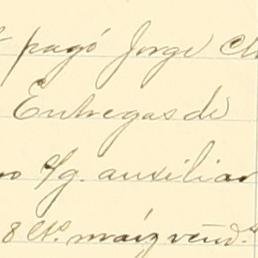 pagó Jorge
Entregas de
s/g. auxiliar
8 Cs. maíz vend.